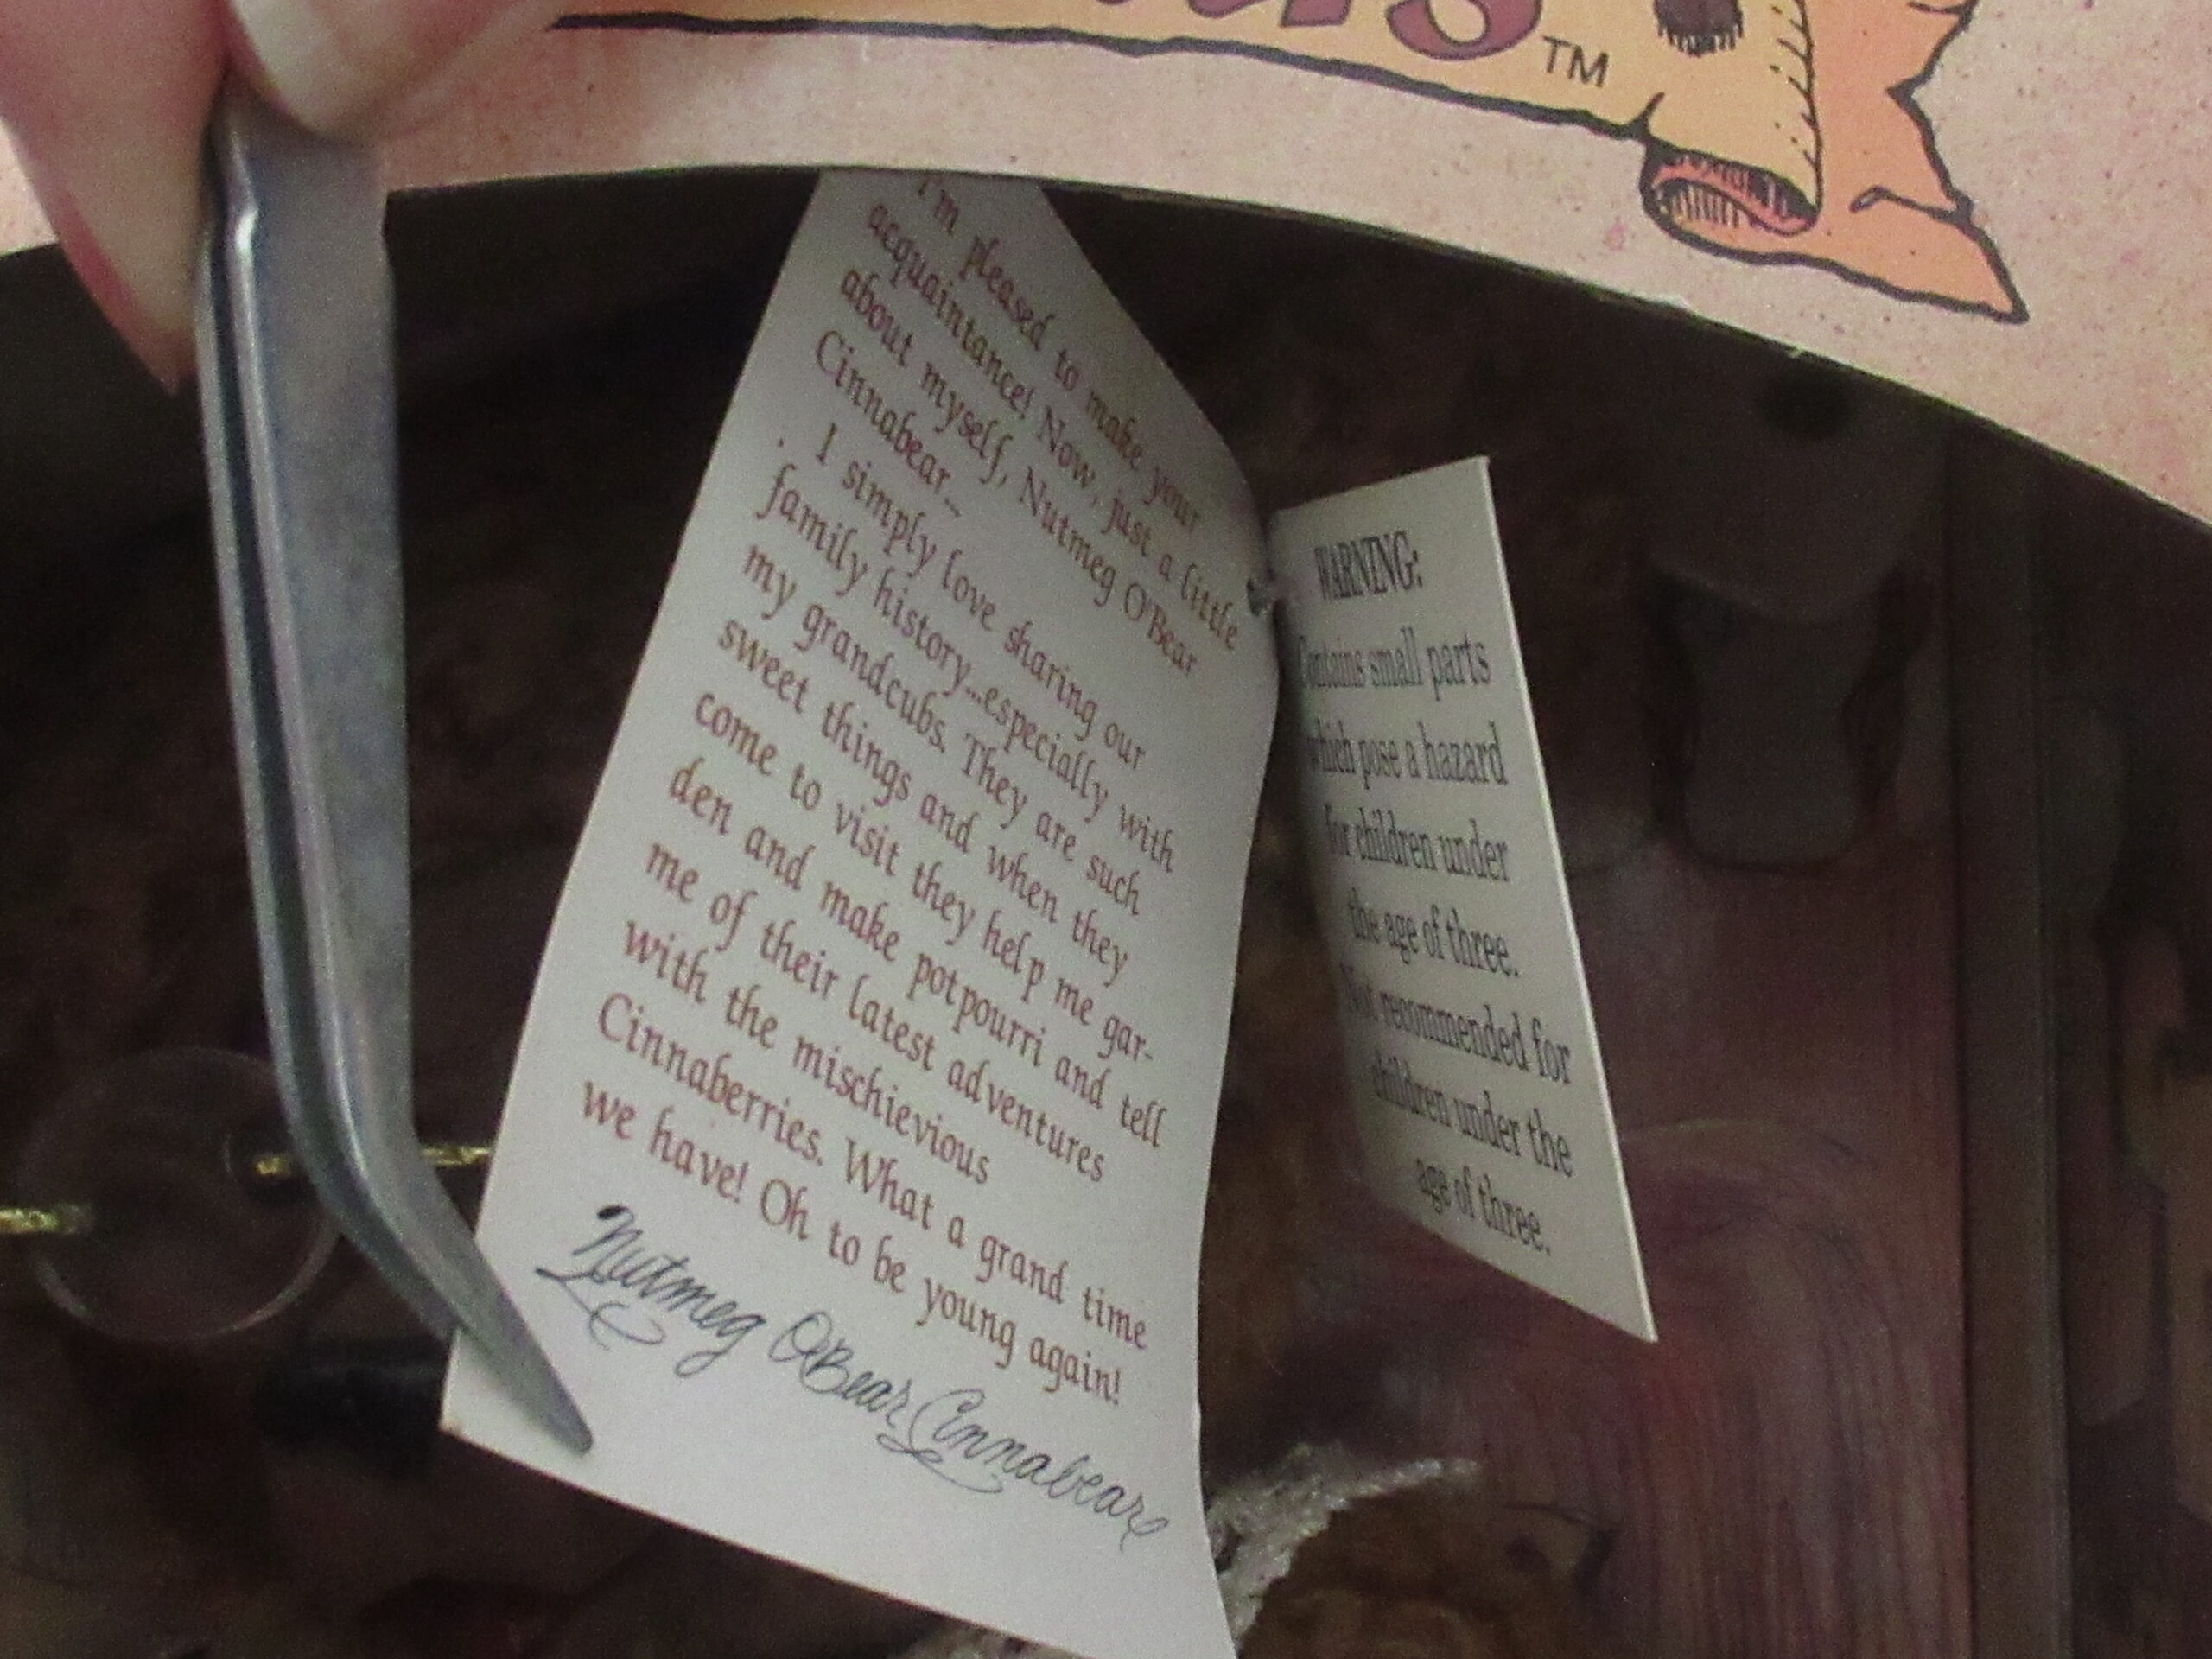 TM
I'm pleased to make your
acquaintance! Now, just a little
about myself, Nutmeg O'Bear
Cinnabear...
I simply love sharing our
family history...especially with
my grandcubs. They are such
sweet things and when they
come to visit they help me gar-
den and make potpourri and tell
me of their latest adventures
with the mischievious
Cinnaberries. What a grand time
we have! Oh to be young again!
Nutmeg O'Bear Cinnabear
WARNING:
Contains small parts
which pose a hazard
for children under
the age of three.
Not recommended for
children under the
age of three.